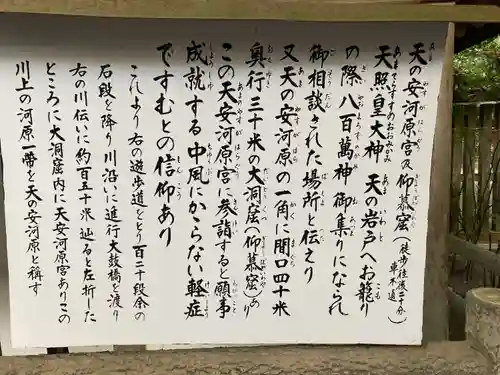 天の安河原宮及仰慕窟(徒歩往復二十分 車不通)
天照皇大神 天の岩戸へお籠り
の際八百萬神 御集りになられ
御相談された場所と伝えり
又天の安河原の一角に間口四十米
奥行三十米の大洞窟(仰慕窟)あり
この天安河原宮に参詣すると願事
成就する中風にかゝらない軽症
ですむとの信仰あり
これより右の遊歩道をとり百三十段余の
石段を降り川沿いに進行大鼓橋を渡り
右の川伝いに約百五十米 辿ると左折した
ところに大洞窟内に天安河原宮ありこの
川上の河原一帶を天の安河原と稱す